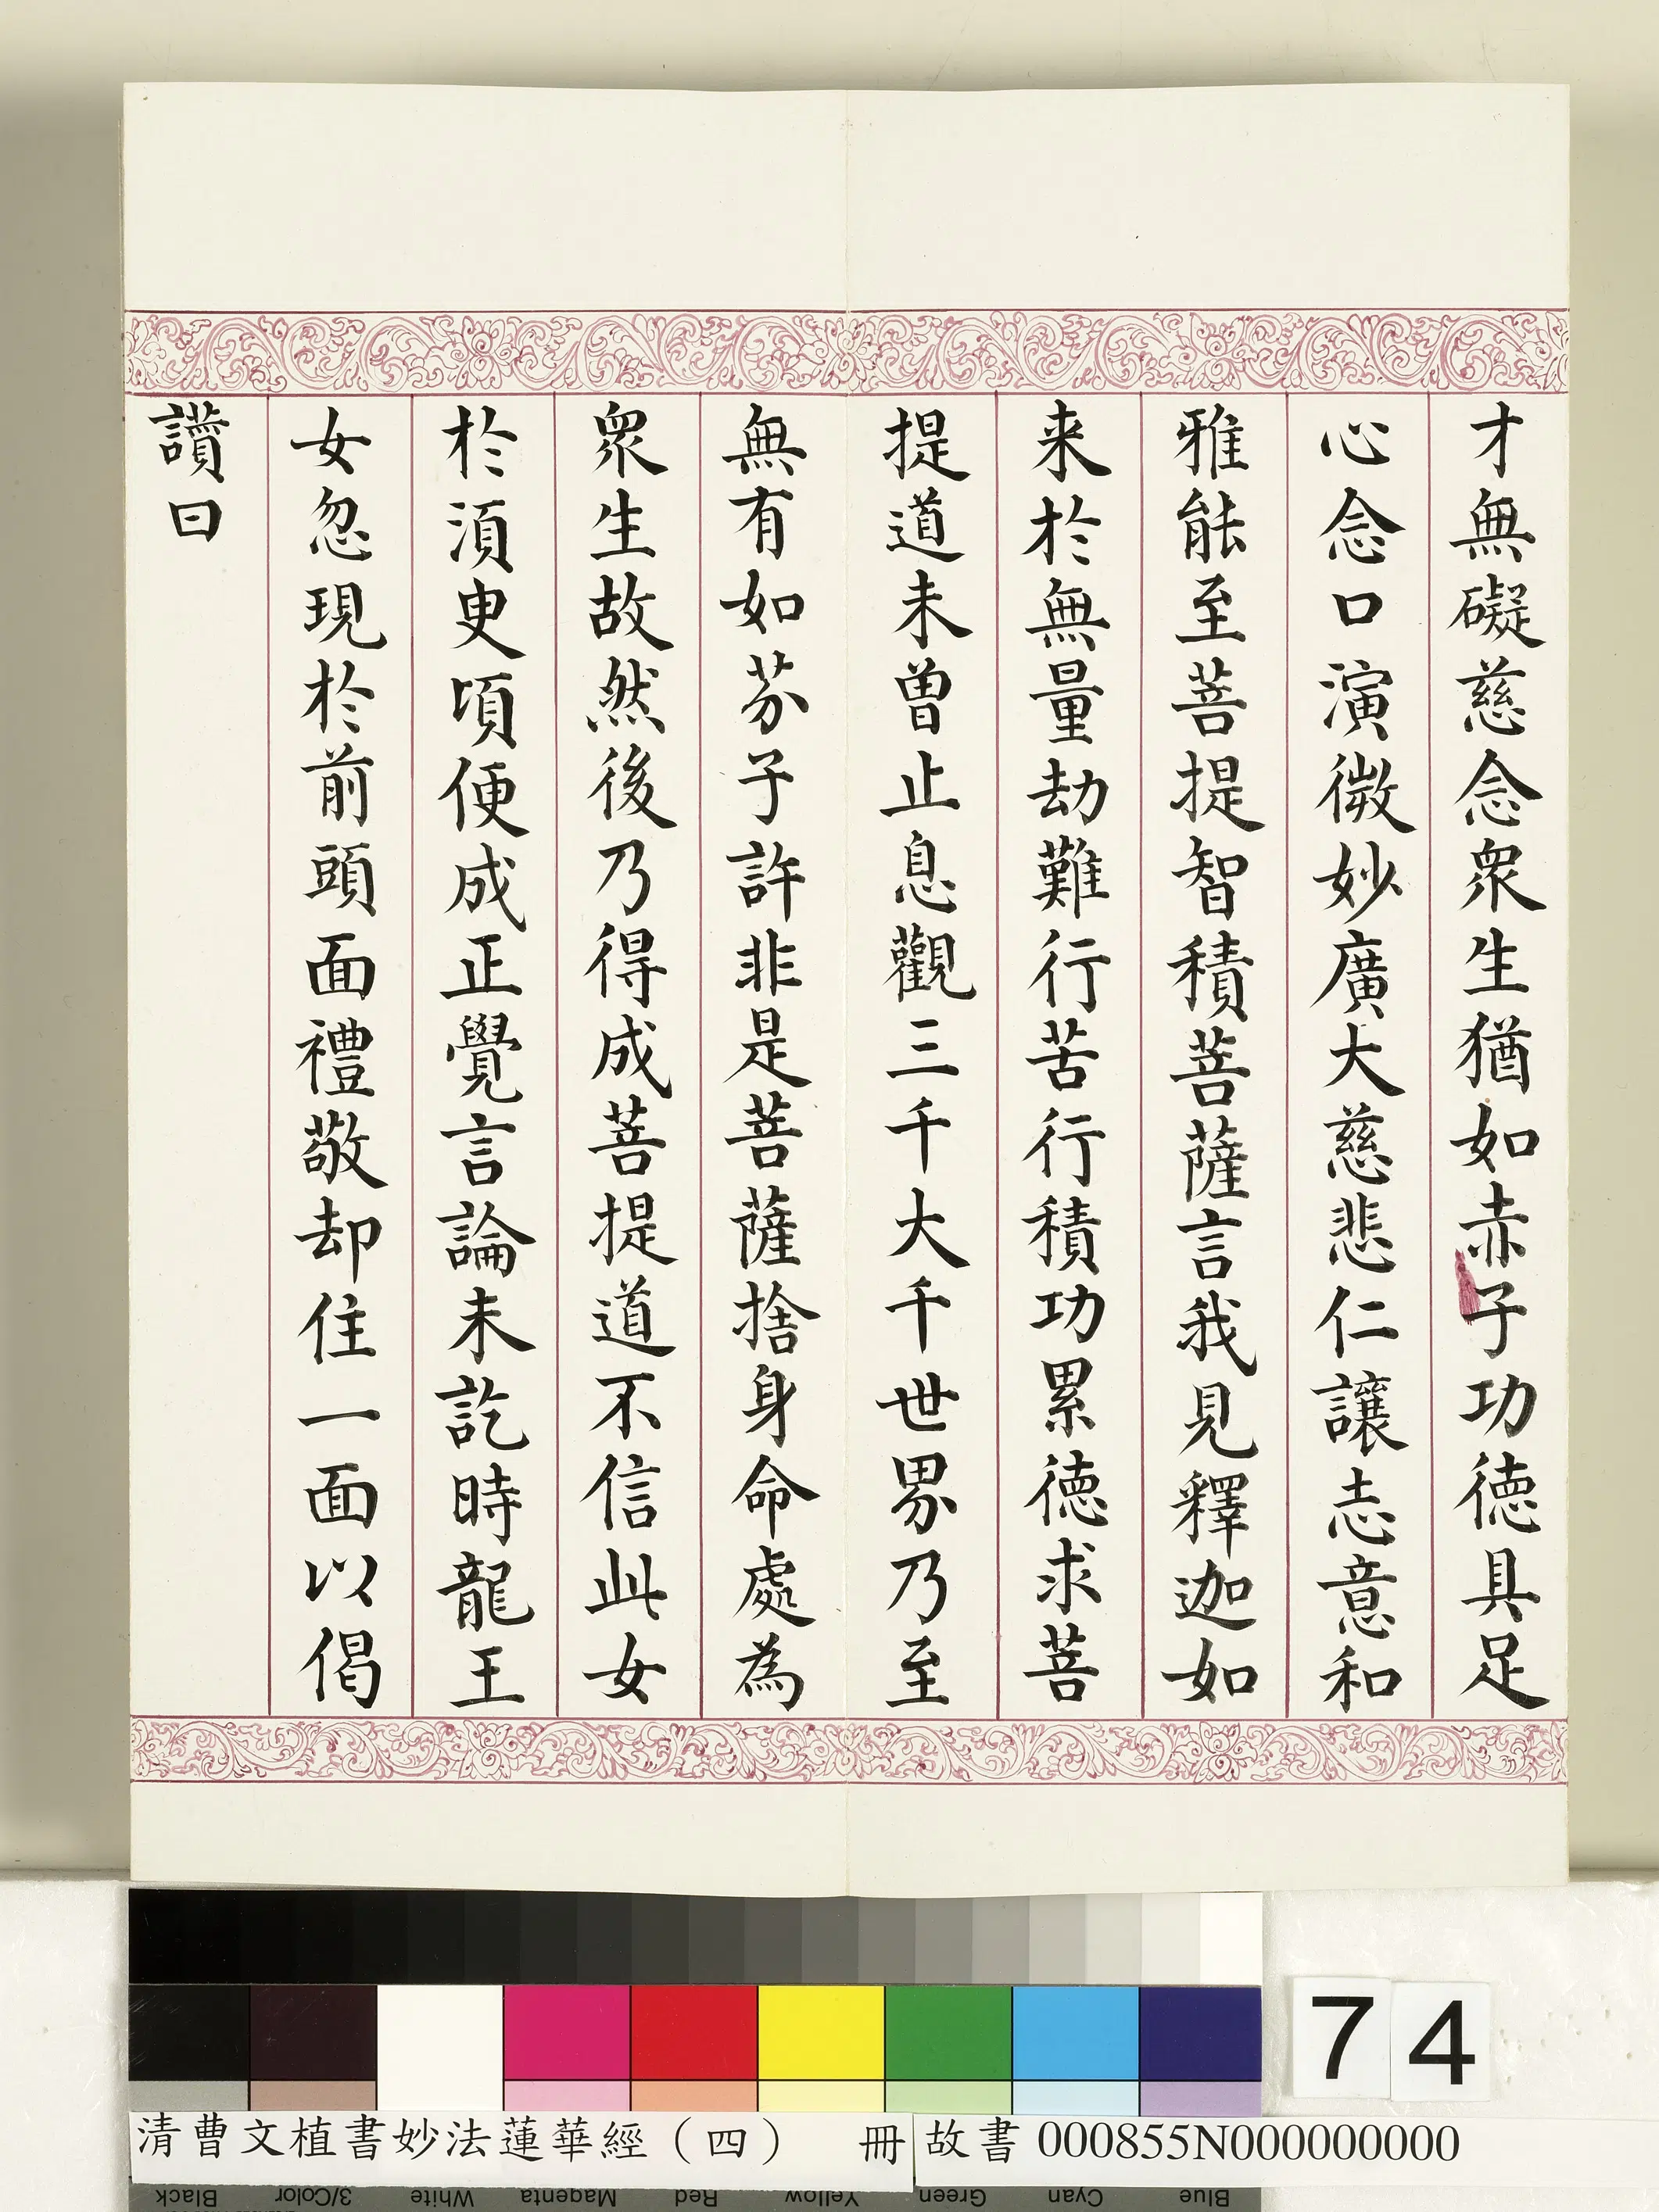 才無礙慈念衆生猶如赤子功德具足
心念口演微妙廣大慈悲仁讓志意和
雅能至菩提智積菩薩言我見釋迦如
来於無量劫難行苦行積功累德求菩
提道未曾止息觀三千大千世界乃至
無有如芥子許非是菩薩捨身命處為
衆生故然後乃得成菩提道不信此女
於湏臾頃便成正覺言論未訖時龍王
女忽現於前頭面禮敬却住一面以偈
讚曰
74
清曹文植書妙法蓮華經（四） 冊
故書 000855N000000000
Black 3/Color White Magenta Red Yellow Green Cyan Blue